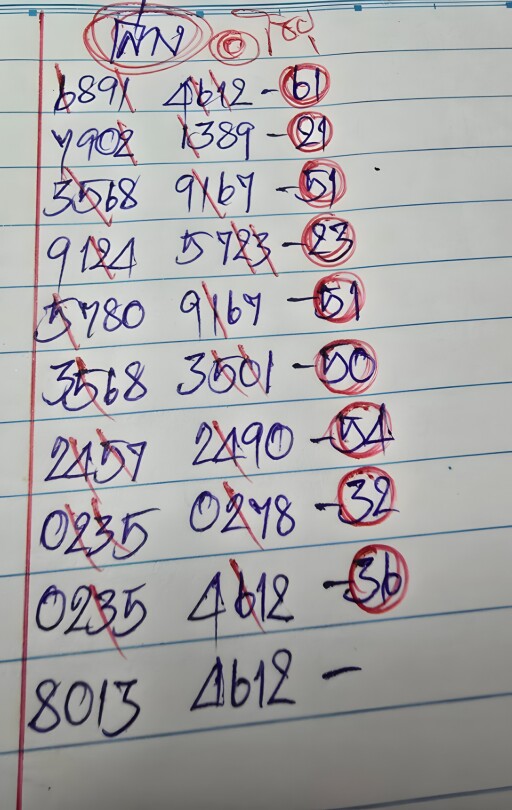 6891 4612 - 61
7902 1389 - 21
3568 9167 - 51
9124 5723 - 23
5780 9167 - 51
3568 3501 - 50
2457 2490 - 54
0235 0278 - 32
0235 4612 - 36
8013 4612 -